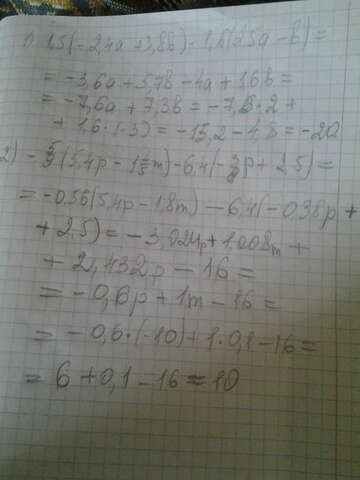 1) 1,5(-2,4a+3,8b)-1,6(2,5a-b)=
= -3,6a+5,7b-4a+1,6b=
= -7,6a+7,3b=-7,6·2+
+1,6·(-3)=-15,2-4,8=-20
2) -5/9(5,4p-1 4/5m)-6,4(-3/8p+2,5)=
=-0,56(5,4p-1,8m)-6,4(-0,38p+
+2,5)=-3,024p+1,008m+
+2,432p-16=
=-0,6p+1m-16=
=-0,6·(-10)+1·0,1-16=
=6+0,1-16=10